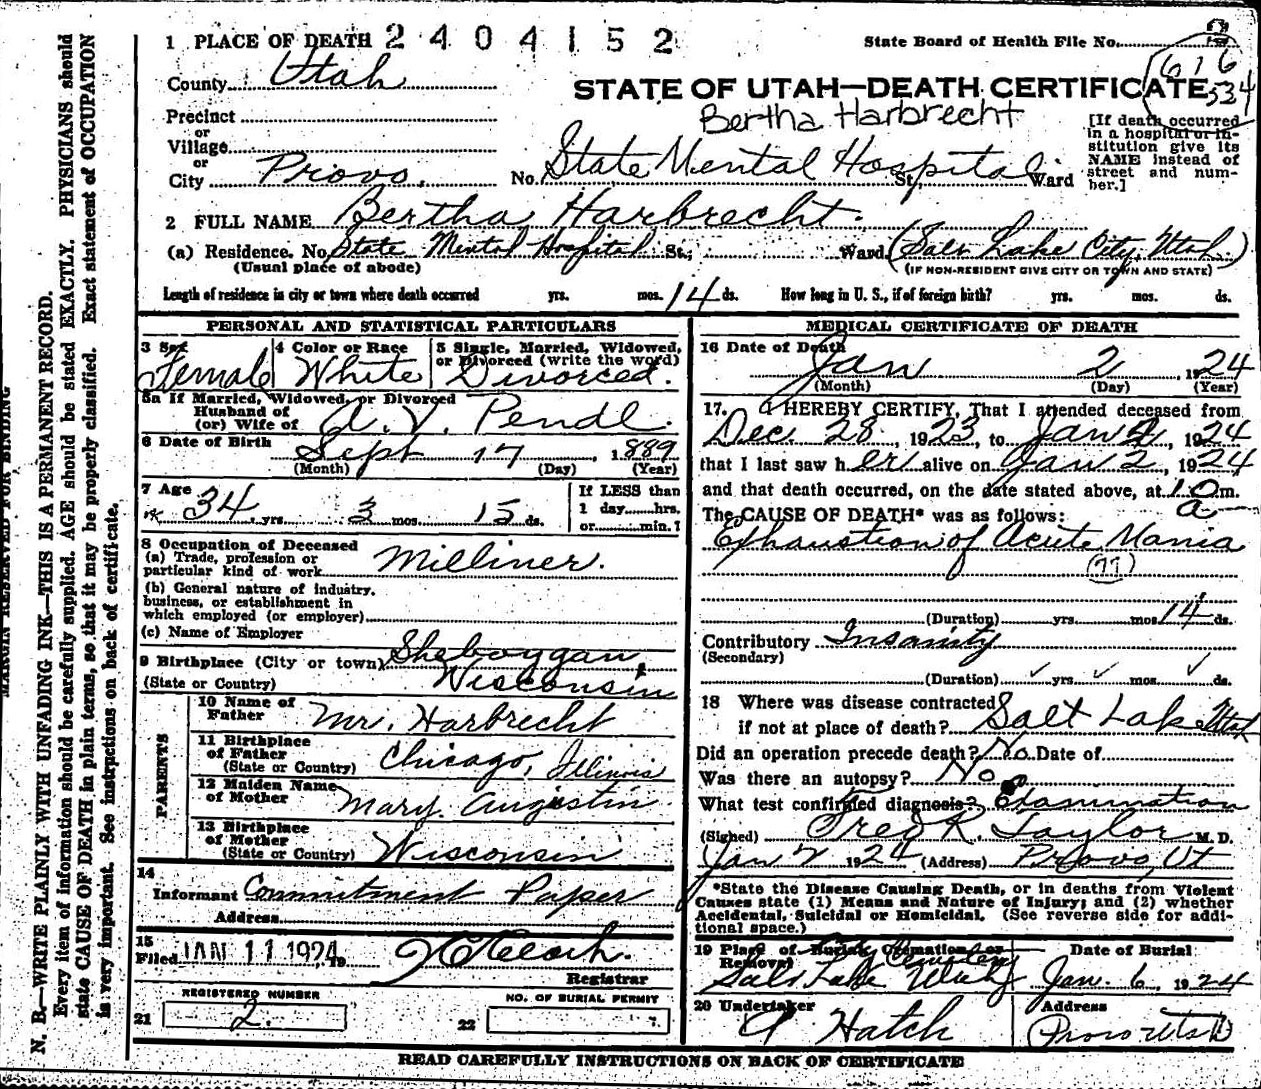 1 PLACE OF DEATH 2404152
State Board of Health File No.
616
534
County Utah
STATE OF UTAH—DEATH CERTIFICATE
Bertha Harbrecht
Precinct
or
Village
or
City Provo, No. State Mental Hospital St. Ward
[If death occurred in a hospital or institution give its NAME instead of street and number.]
2 FULL NAME Bertha Harbrecht.
(a) Residence. No. State Mental Hospital St., Ward. (Salt Lake City, Utah.)
(Usual place of abode) (IF NON-RESIDENT GIVE CITY OR TOWN AND STATE)
Length of residence in city or town where death occurred yrs. mos. 14 ds. How long in U. S., if of foreign birth? yrs. mos. ds.
PERSONAL AND STATISTICAL PARTICULARS
3 Sex Female
4 Color or Race White
5 Single, Married, Widowed, or Divorced (write the word) Divorced.
5a If Married, Widowed, or Divorced
Husband of
(or) Wife of A. V. Pendl.
6 Date of Birth Sept 17, 1889
(Month) (Day) (Year)
7 Age 34 yrs. 3 mos. 15 ds.
If LESS than
1 day hrs.
or min.?
8 Occupation of Deceased
(a) Trade, profession or
particular kind of work Milliner.
(b) General nature of industry,
business, or establishment in
which employed (or employer)
(c) Name of Employer
9 Birthplace (City or town) Sheboygan,
(State or Country) Wisconsin
PARENTS
10 Name of
Father Mr. Harbrecht
11 Birthplace
of Father
(State or Country) Chicago, Illinois
12 Maiden Name
of Mother Mary Augustin
13 Birthplace
of Mother
(State or Country) Wisconsin
14
Informant Commitment Paper
Address
15
Filed JAN 11 1924, 19
Registrar
REGISTERED NUMBER
21 2.
NO. OF BURIAL PERMIT
22
MEDICAL CERTIFICATE OF DEATH
16 Date of Death Jan 2 1924
(Month) (Day) (Year)
17. I HEREBY CERTIFY, That I attended deceased from
Dec. 28, 1923, to Jan 2, 1924
that I last saw her alive on Jan 2, 1924
and that death occurred, on the date stated above, at 10 a m.
The CAUSE OF DEATH* was as follows:
Exhaustion of Acute Mania
(77)
(Duration) yrs. mos. 14 ds.
Contributory Insanity
(Secondary)
(Duration) yrs. mos. ds.
18 Where was disease contracted
if not at place of death? Salt Lake Utah
Did an operation precede death? No Date of
Was there an autopsy? No
What test confirmed diagnosis? Examination
(Signed) Fred R. Taylor M. D.
Jan 2 1924 (Address) Provo, Ut
*State the Disease Causing Death, or in deaths from Violent
Causes state (1) Means and Nature of Injury; and (2) whether
Accidental, Suicidal or Homicidal. (See reverse side for additional space.)
19 Place of Burial, Cremation or
Removal City Cemetery
Salt Lake Utah
Date of Burial
Jan. 6, 1924
20 Undertaker
Hatch
Address
Provo Utah
READ CAREFULLY INSTRUCTIONS ON BACK OF CERTIFICATE
MARGIN RESERVED FOR BINDING
N. B.—WRITE PLAINLY WITH UNFADING INK—THIS IS A PERMANENT RECORD.
Every item of information should be carefully supplied. AGE should be stated EXACTLY. PHYSICIANS should
state CAUSE OF DEATH in plain terms, so that it may be properly classified. Exact statement of OCCUPATION
is very important. See instructions on back of certificate.